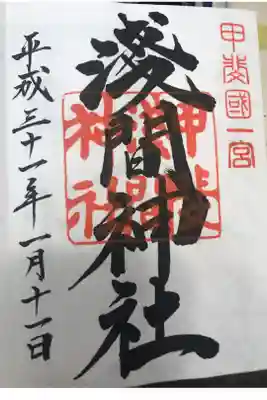 甲斐國一宮
浅間神社
平成三十一年一月十一日